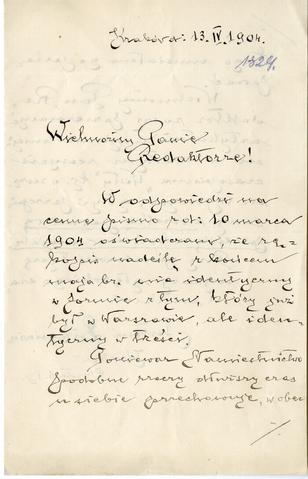 Kraków d: 13.IV.1904.
1324.
Wielmożny Panie
Redaktorze!
W odpowiedzi na
cenne pismo z d: 10 marca
1904 oświadczam, że rę-
kopis nadeślę z końcem
maja br. nie identyczny
w formie z tym, który już
był w Warszawie, ale iden-
tyczny w treści.
Ponieważ Namiestnictwo
podobne rzeczy dłuższy czas
u siebie przechowuje, wobec